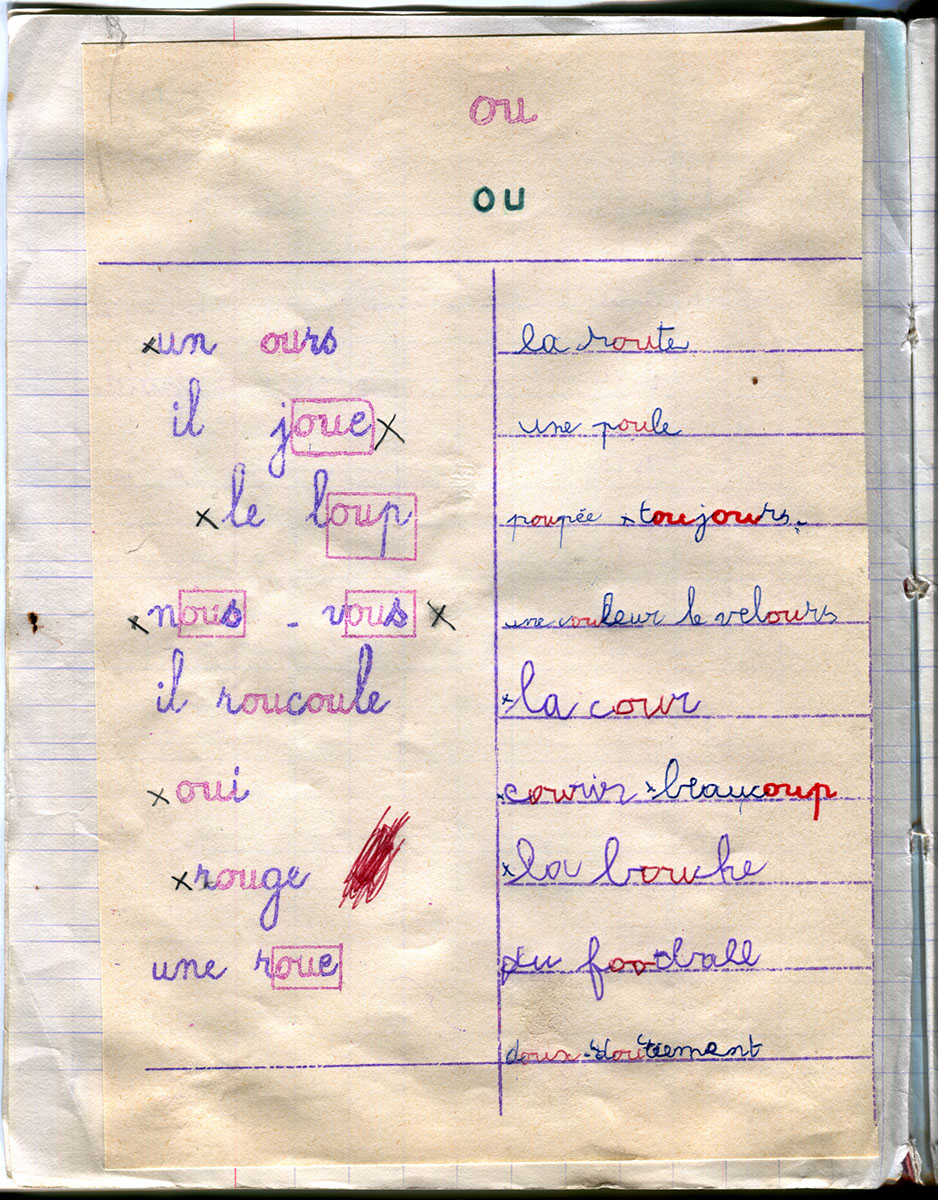 ou
ou
un ours
il joue
le loup
nous - vous
il roucoule
oui
rouge
une roue
la route
une poule
poupée toujours
une couleur le velours
la cour
courir beaucoup
la bouche
du football
doux